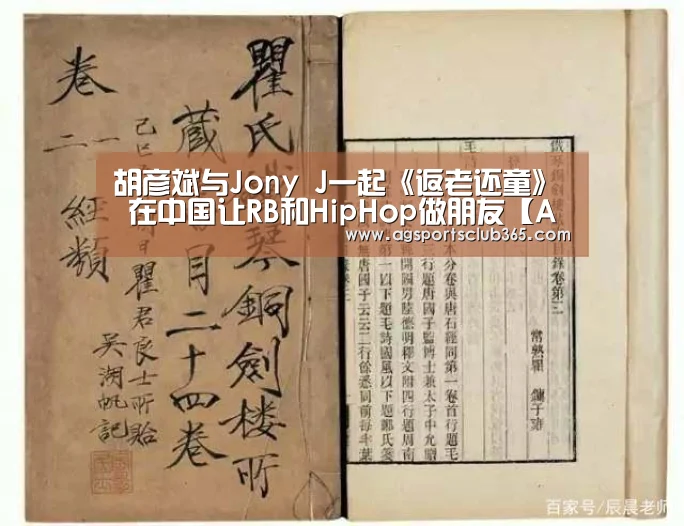 胡彦斌与Jony J一起《返老还童》
在中国让RB和HipHop做朋友【A
www.agsportsclub365.com
瞿氏琴銅劍楼所
藏目二十四卷
卷一二 經類
瞿君良士所貽
吴湖帆記
鐵琴銅劍樓目錄卷第三
常熟瞿 鏞子雍
毛詩
本分卷與唐石經同第一卷首行題毛
行題唐國子監博士兼太子中允贈
開國男陸德明釋文附四行題周南
第一以下題毛詩國風以下題鄭氏箋
唐國子云云二行餘悉同前每半葉
百家号/辰晨老师